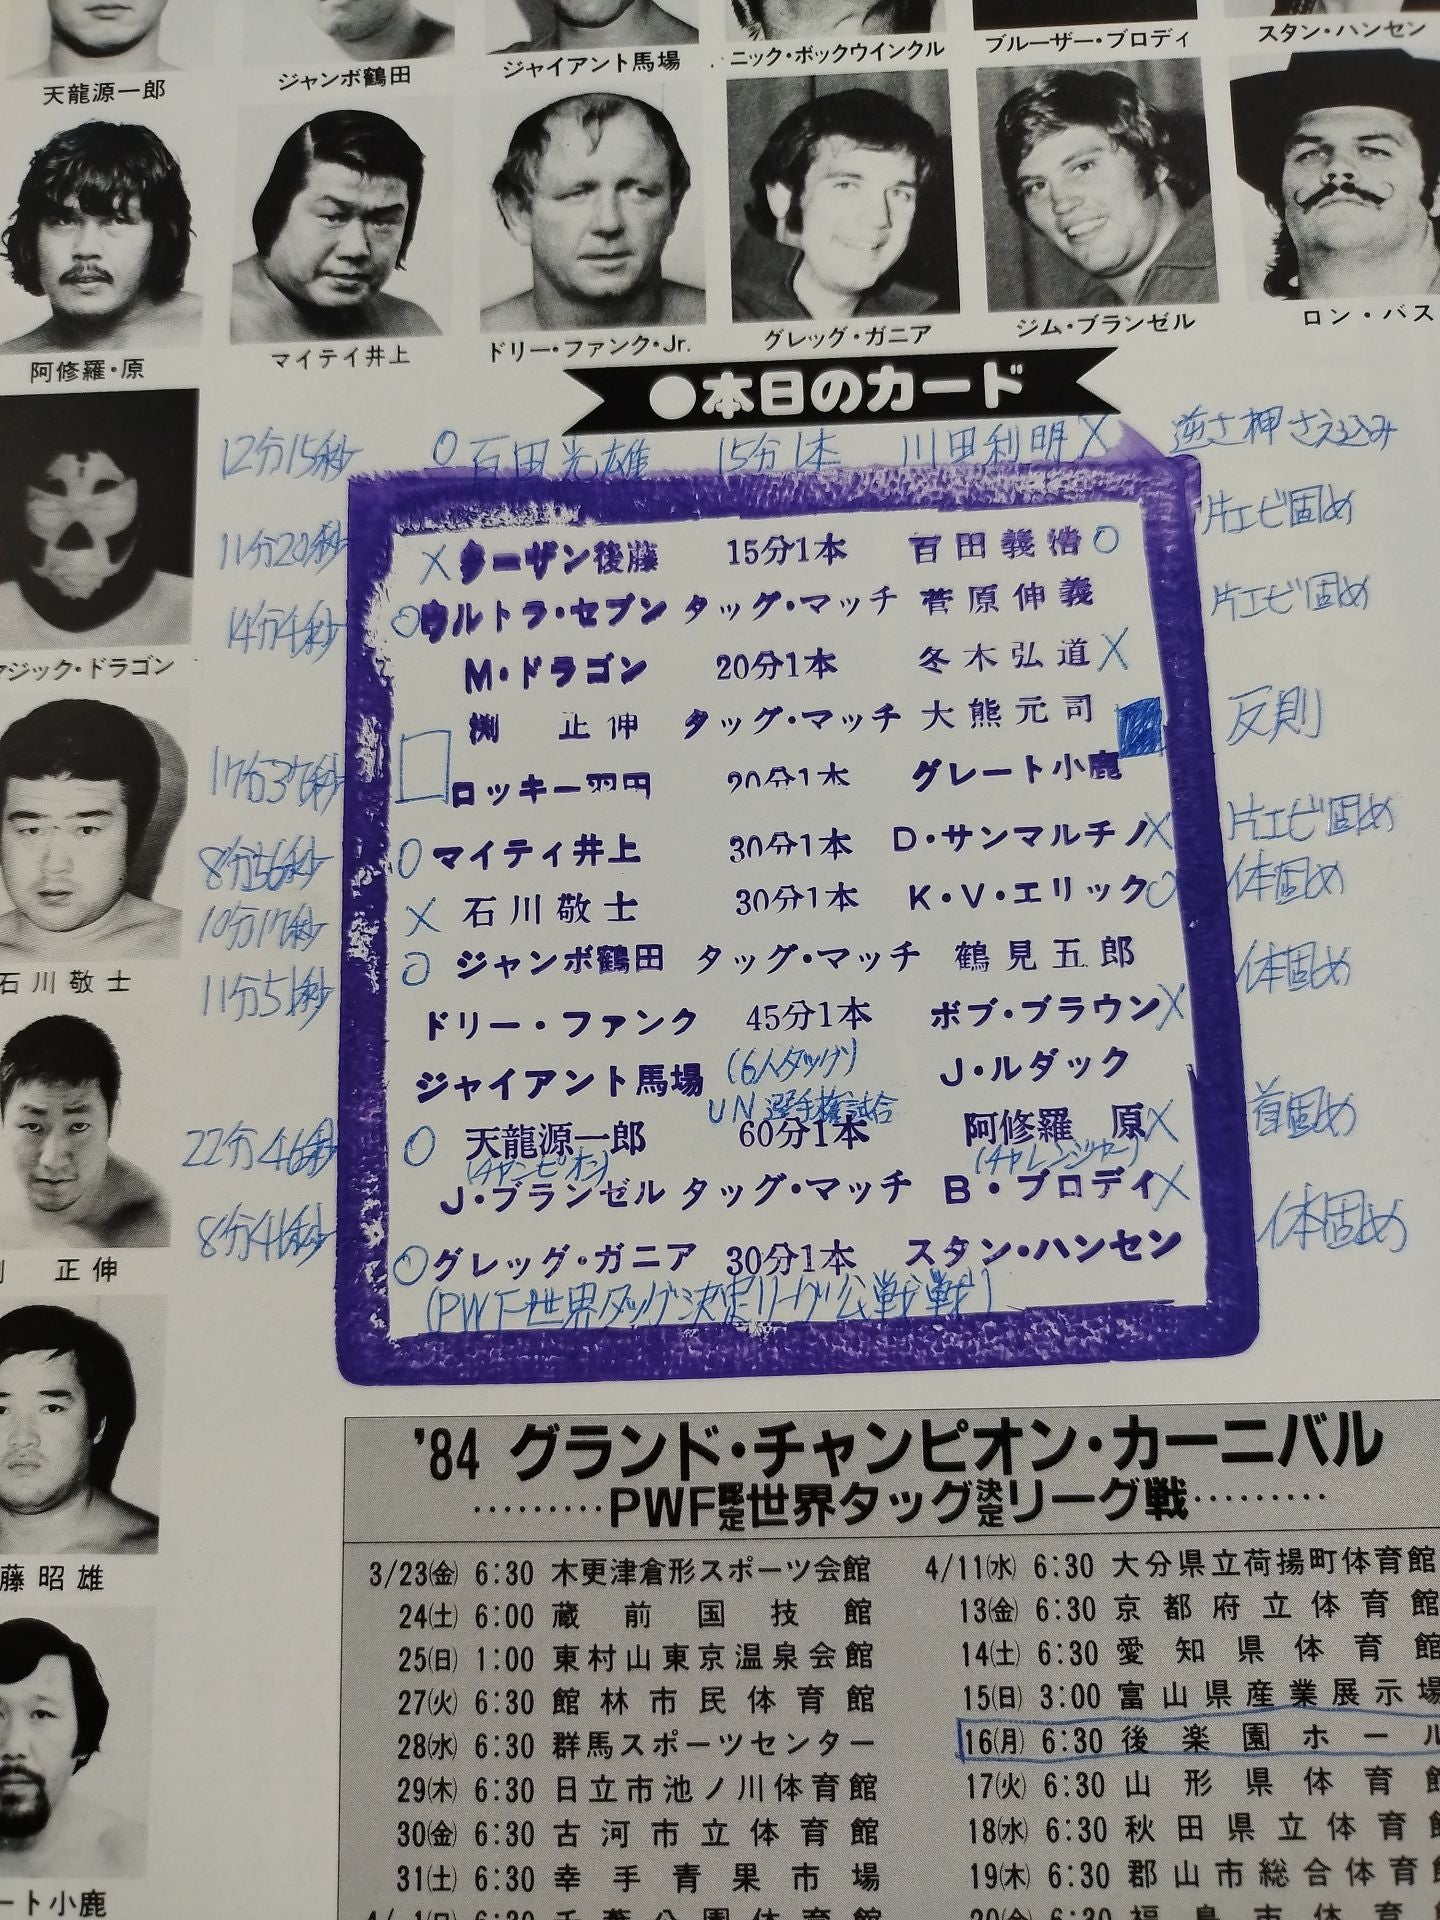 天龍源一郎 ジャンボ鶴田 ジャイアント馬場 ニック・ボックウインクル ブルーザー・ブロディ スタン・ハンセン
阿修羅・原 マイテイ井上 ドリー・ファンク・Jr. グレッグ・ガニア ジム・ブランゼル ロン・バス
●本日のカード
12分15秒 ○ 百田光雄 15分1本 川田利明 × 逆さ押さえ込み
11分20秒 × ターザン後藤 15分1本 百田義浩 ○ 片エビ固め
14分4秒 ○ ウルトラ・セブン タッグ・マッチ 菅原伸義 片エビ固め
M・ドラゴン 20分1本 冬木弘道 ×
マジック・ドラゴン
渕 正伸 タッグ・マッチ 大熊元司 反則
17分37秒 ロッキー羽田 20分1本 グレート小鹿
8分56秒 ○ マイティ井上 30分1本 D・サンマルチノ × 片エビ固め
10分17秒 × 石川敬士 30分1本 K・V・エリック ○ 体固め
石川敬士
11分51秒 ○ ジャンボ鶴田 タッグ・マッチ 鶴見五郎 体固め
ドリー・ファンク 45分1本 ボブ・ブラウン ×
ジャイアント馬場 (6人タッグ) J・ルダック
UN選手権試合
22分46秒 ○ 天龍源一郎 60分1本 阿修羅 原 × 首固め
(チャンピオン) (チャレンジャー)
J・ブランゼル タッグ・マッチ B・ブロディ ×
8分41秒 ○ グレッグ・ガニア 30分1本 スタン・ハンセン 体固め
(PWF世界タッグ決定リーグ公式戦)
正伸
藤昭雄
ート小鹿
'84 グランド・チャンピオン・カーニバル
………PWF認定世界タッグ決定リーグ戦………
3/23㈮ 6:30 木更津倉形スポーツ会館
24㈯ 6:00 蔵前国技館
25㈰ 1:00 東村山東京温泉会館
27㈫ 6:30 館林市民体育館
28㈬ 6:30 群馬スポーツセンター
29㈭ 6:30 日立市池ノ川体育館
30㈮ 6:30 古河市立体育館
31㈯ 6:30 幸手青果市場
4/11㈬ 6:30 大分県立荷揚町体育館
13㈮ 6:30 京都府立体育館
14㈯ 6:30 愛知県体育館
15㈰ 3:00 富山県産業展示場
16㈪ 6:30 後楽園ホール
17㈫ 6:30 山形県体育館
18㈬ 6:30 秋田県立体育館
19㈭ 6:30 郡山市総合体育館